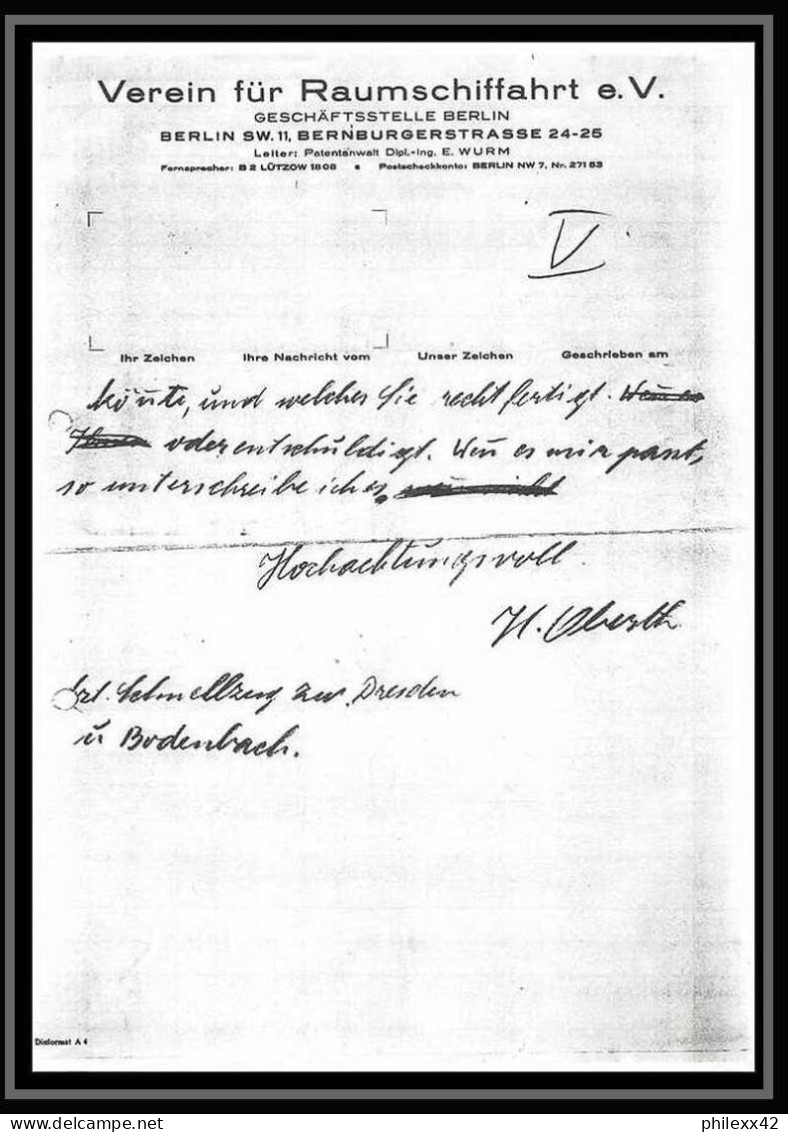 Verein für Raumschiffahrt e.V.
GESCHÄFTSSTELLE BERLIN
BERLIN SW. 11, BERNBURGERSTRASSE 24-25
Leiter: Patentanwalt Dipl.-Ing. E. WURM
Fernsprecher: B 2 LÜTZOW 1808 • Postscheckkonto: BERLIN NW 7, Nr. 27163
V
Ihr Zeichen Ihre Nachricht vom Unser Zeichen Geschrieben am
könnte, und welches Sie rechtfertigt.
oder entschuldigt. Wenn es mir passt,
so unterschreibe ich es,
Hochachtungsvoll
H. Oberth
Schnellzug zw. Dresden
u Bodenbach.
Dinformat A 4
delcampe.net
philexx42